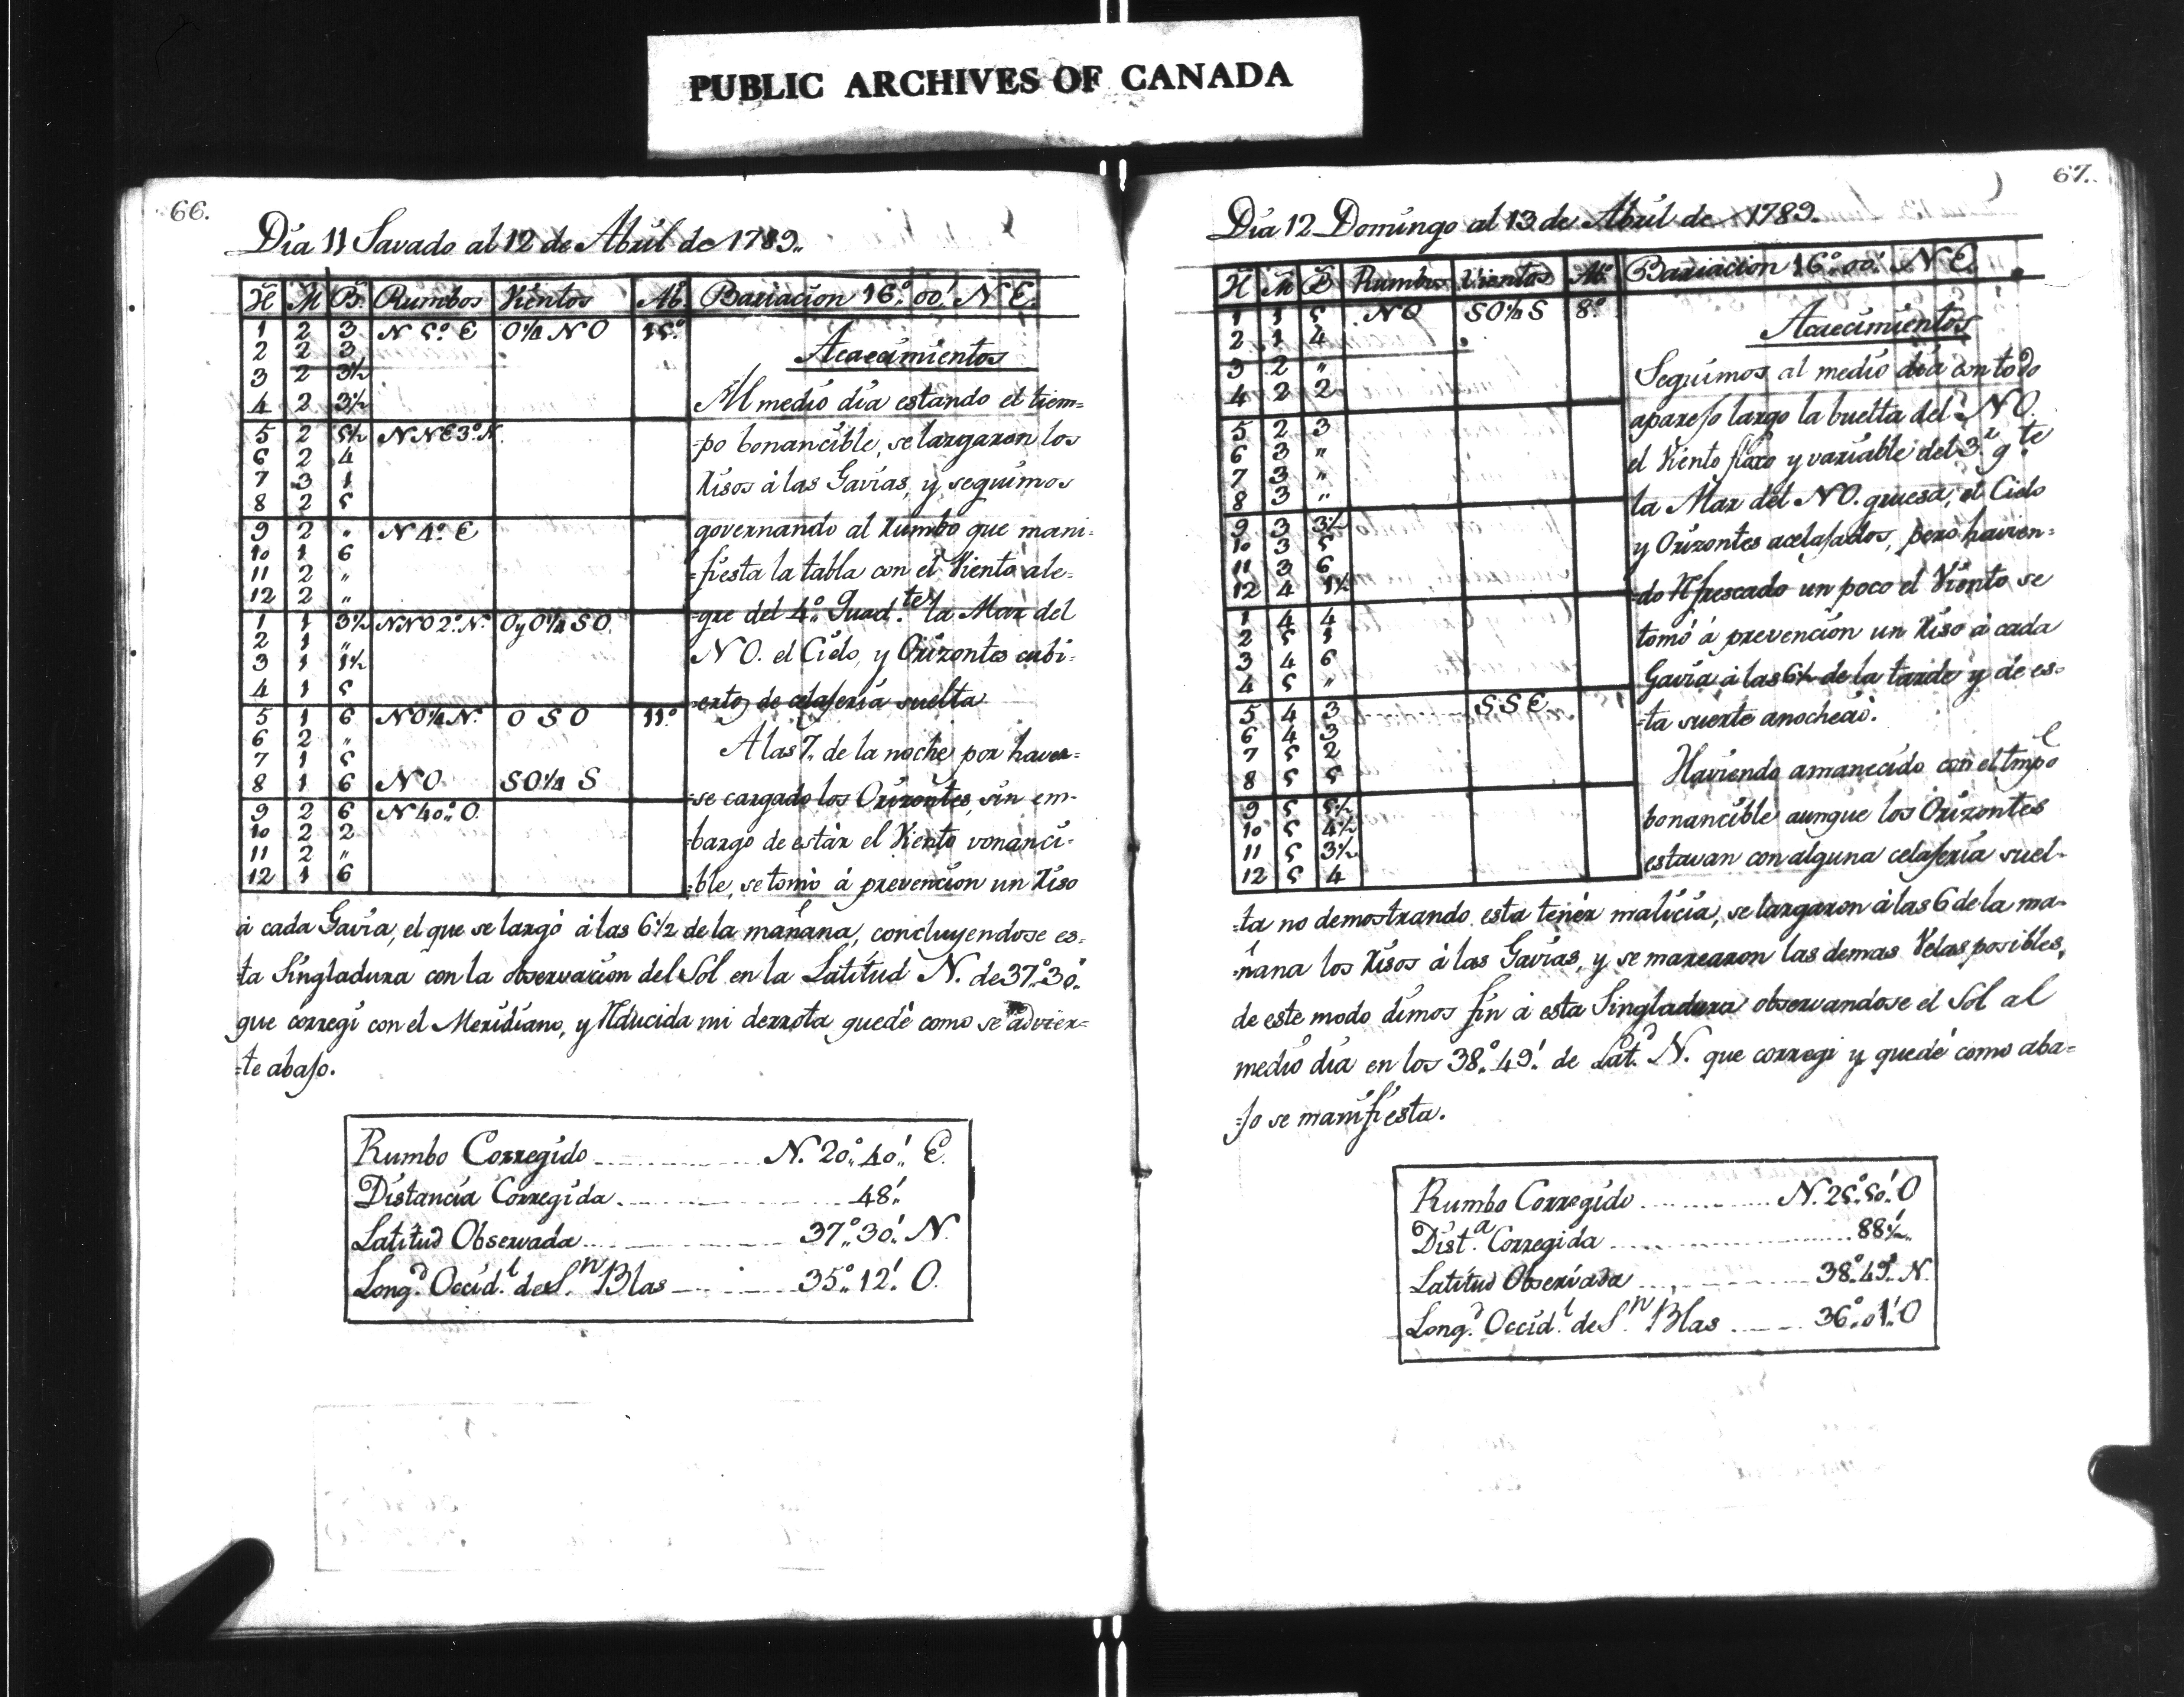 PUBLIC ARCHIVES OF CANADA
66.
Dia 11 Savado al 12 de Abril de 1789.,
H M B Rumbos Vientos Ab.º Bariacion 16.º 00.' N E.
1 2 3 N 5.º E O¼NO 15.º
2 2 3
3 2 3½
4 2 3½
5 2 5½ NNE3.ºN.
6 2 4
7 3 1
8 2 5
9 2 " N 4.º E
10 1 6
11 2 "
12 2 "
1 1 3½ NNO 2.º N. O y O¼ SO.
2 1 "
3 1 1½
4 1 5
5 1 6 NO¼N. O S O 11.º
6 2 "
7 1 5
8 1 6 NO SO¼ S
9 2 6 N 40.º O.
10 2 2
11 2 "
12 1 6
Acaecimientos
Al medio dia estando el tiem=
=po bonancible, se largaron los
Risos à las Gavias, y seguimos
governando al Rumbo que mani=
=fiesta la tabla con el Viento ale=
=gre del 4.º Quad.te, la Mar del
NO. el Cielo, y Orizontes cubi=
=ertos de celaferia suelta.
A las 7. de la noche por haver=
=se cargado los Orizontes, sin em=
=bargo de estàr el Viento vonanci=
=ble, se tomò à prevencion un Riso
à cada Gavia, el que se largò à las 6½ de la mañana, concluyendose es=
=ta Singladura con la observacion del Sol en la Latitud N. de 37.º 30.'
que corregi con el Meridiano, y Rducida mi derrota quedè como se advier=
=te abajo.
Rumbo Corregido N. 20.º 40.' E.
Distancia Corregida 48.'
Latitud Observada 37.º 30.' N.
Long.d Occid.l de S.n Blas 35.º 12.' O.
67.
Dia 12 Domingo al 13 de Abril de 1789.
H M B Rumbos Vientos Ab.º Bariacion 16.º 00.' N E.
1 1 5 NO SO¼ S 8.º
2 1 4
3 2 "
4 2 2
5 2 3
6 3 "
7 3 "
8 3 "
9 3 3½
10 3 5
11 3 6
12 4 1½
1 4 4
2 5 1
3 4 6
4 5 "
5 4 3 S S E
6 4 3
7 5 2
8 5 5
9 5 5½
10 5 4½
11 5 3½
12 5 4
Acaecimientos
Seguimos al medio dia con todo
aparejo largo la buelta del NO.
el Viento floxo y variable del 3.r q.te
la Mar del NO. gruesa, el Cielo
y Orizontes acelajados, pero havien=
=do Rfrescado un poco el Viento se
tomò à prevencion un Riso à cada
Gavia à las 6½ de la tarde y de es=
=ta suerte anocheciò.
Haviendo amanecido con el tmpo
bonancible aunque los Orizontes
estavan con alguna celajeria suel=
=ta no demostrando esta tenèr malicia, se largaron à las 6 de la ma=
=ñana los Risos à las Gavias, y se marearon las demas Velas posibles,
de este modo dimos fin à esta Singladura observandose el Sol al
medio dia en los 38.º 49.' de Lat.d N. que corregi y quedè como aba=
=jo se manifiesta.
Rumbo Corregido N. 25.º 50.' O
Dist.a Corregida 88½.'
Latitud Observada 38.º 49.' N.
Long.d Occid.l de S.n Blas 36.º 01.' O